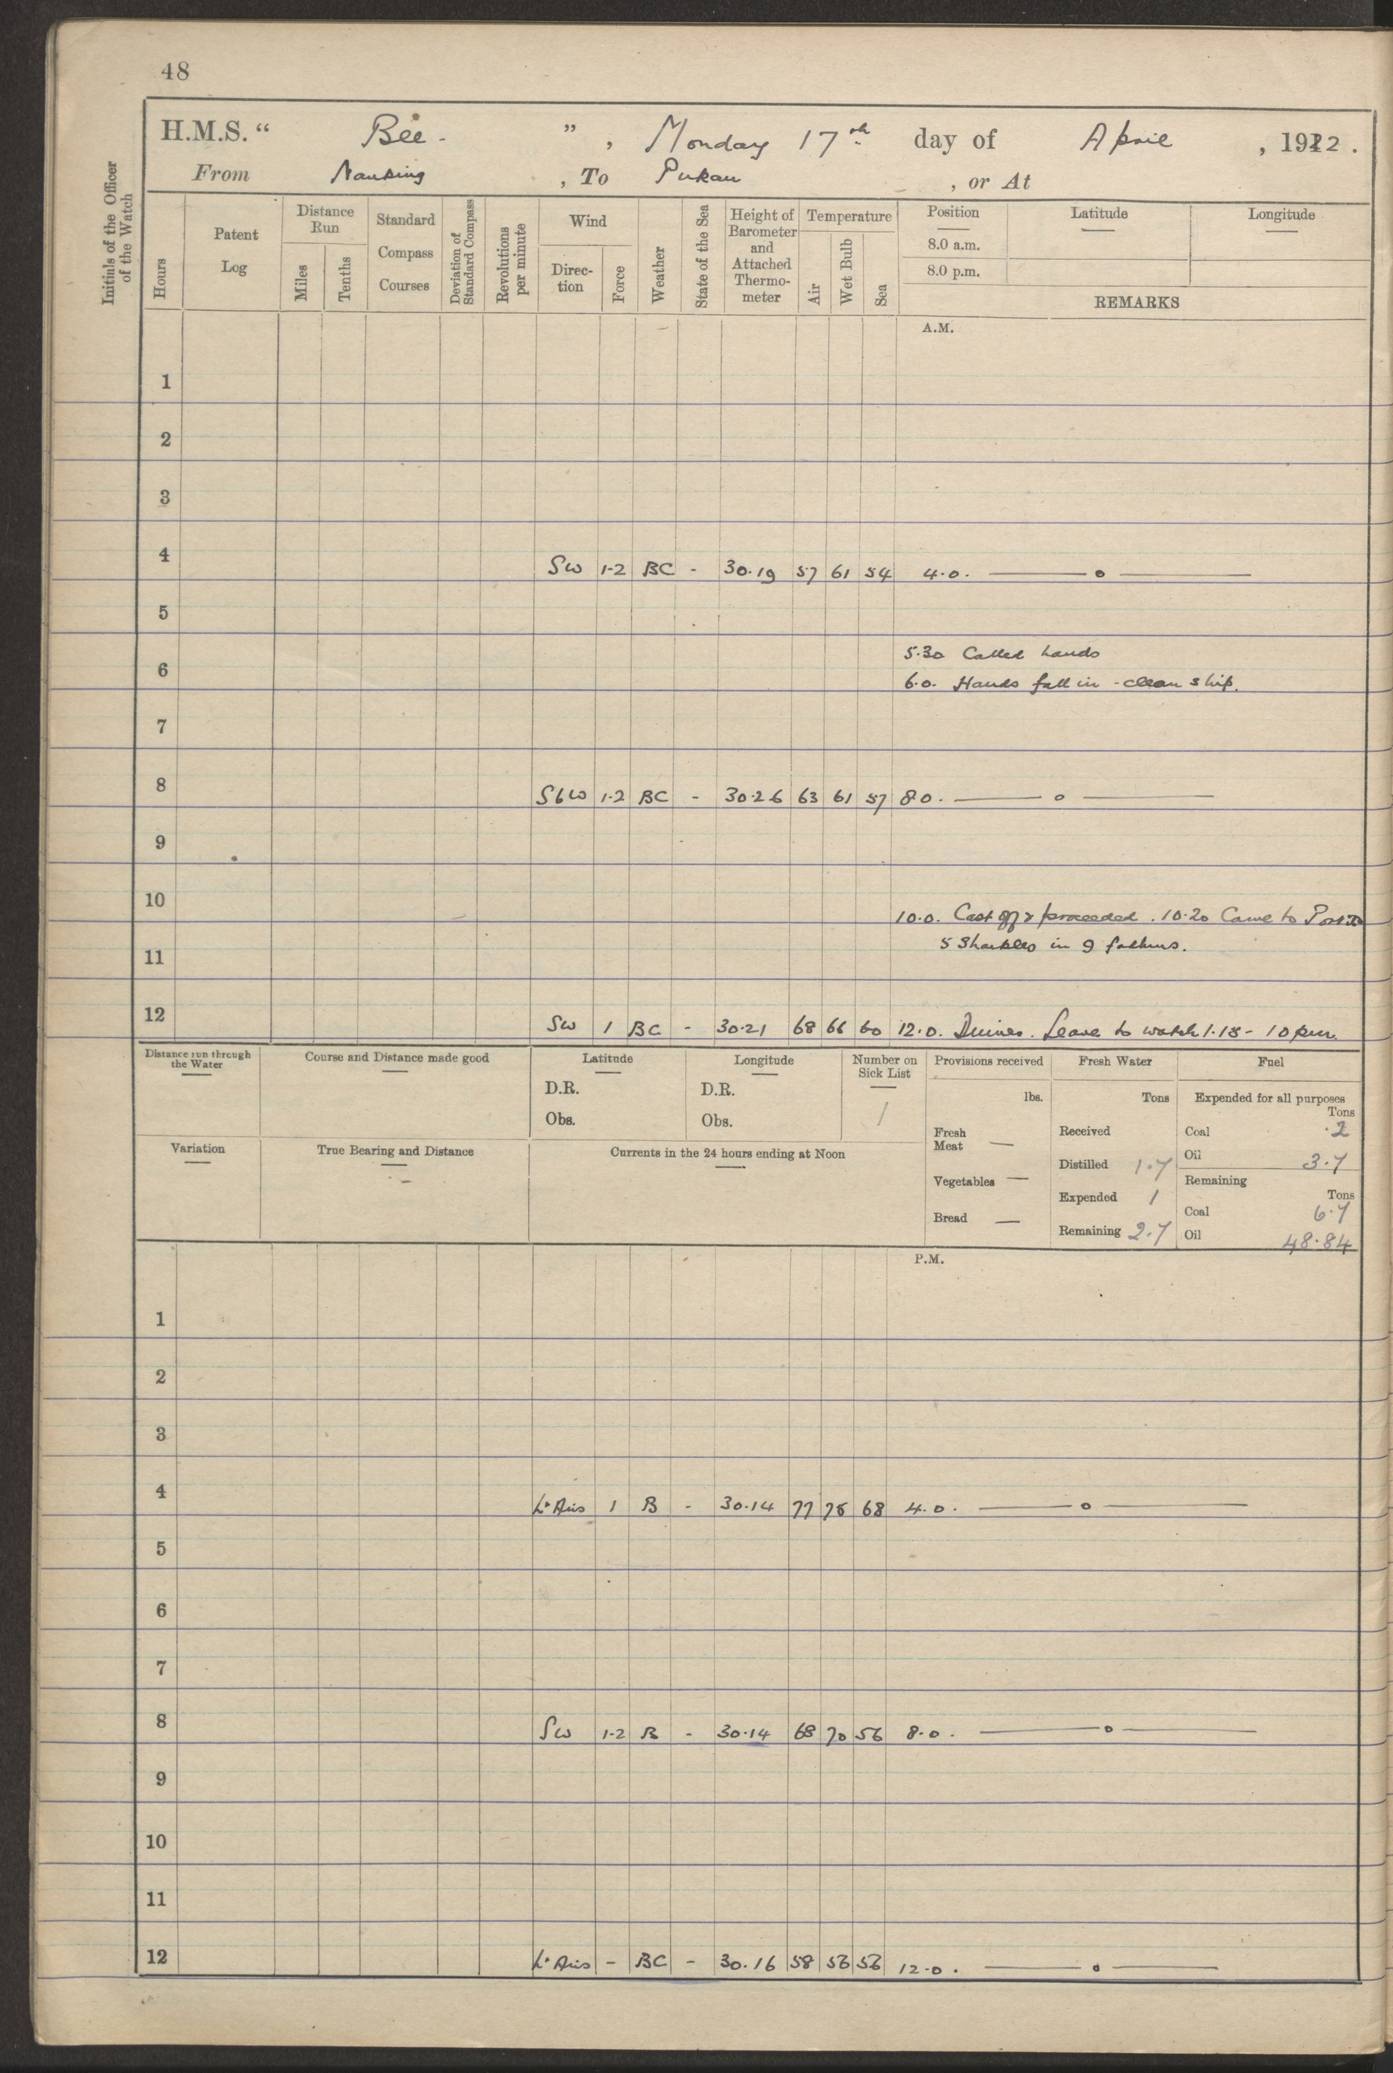 48
H.M.S. “ Bee - ” , Monday 17th day of April , 1922 .
From Nanking , To Pukau , or At
Initials of the Officer of the Watch
Hours
Patent Log
Distance Run
Miles
Tenths
Standard Compass Courses
Deviation of Standard Compass
Revolutions per minute
Wind
Direc- tion
Force
Weather
State of the Sea
Height of Barometer and Attached Thermo- meter
Temperature
Air
Wet Bulb
Sea
Position
8.0 a.m.
8.0 p.m.
Latitude
Longitude
REMARKS
A.M.
1
2
3
4 SW 1-2 BC - 30.19 57 61 54 4.0. ——— o ———
5
5.30 Called hands
6
6.0. Hands fall in - clean ship.
7
8 SbW 1-2 BC - 30.26 63 61 57 8.0. ——— o ———
9
10
10.0. Cast off & proceeded . 10.20 Came to Port
5 Shackles in 9 fathms.
11
12 SW 1 BC - 30.21 68 66 60 12.0. Leave to watch 1.15 - 10 pm.
Distance run through the Water
Course and Distance made good
Latitude
D.R.
Obs.
Longitude
D.R.
Obs.
Number on Sick List
1
Variation
True Bearing and Distance
Currents in the 24 hours ending at Noon
Provisions received
lbs.
Fresh Meat —
Vegetables —
Bread —
Fresh Water
Tons
Received
Distilled 1.7
Expended 1
Remaining 2.7
Fuel
Expended for all purposes
Tons
Coal .2
Oil 3.7
Remaining
Tons
Coal 6.7
Oil 48.84
P.M.
1
2
3
4 Lt Airs 1 B - 30.14 77 75 68 4.0. ——— o ———
5
6
7
8 SW 1-2 B - 30.14 68 70 56 8.0. ——— o ———
9
10
11
12 Lt Airs - BC - 30.16 58 56 56 12.0. ——— o ———